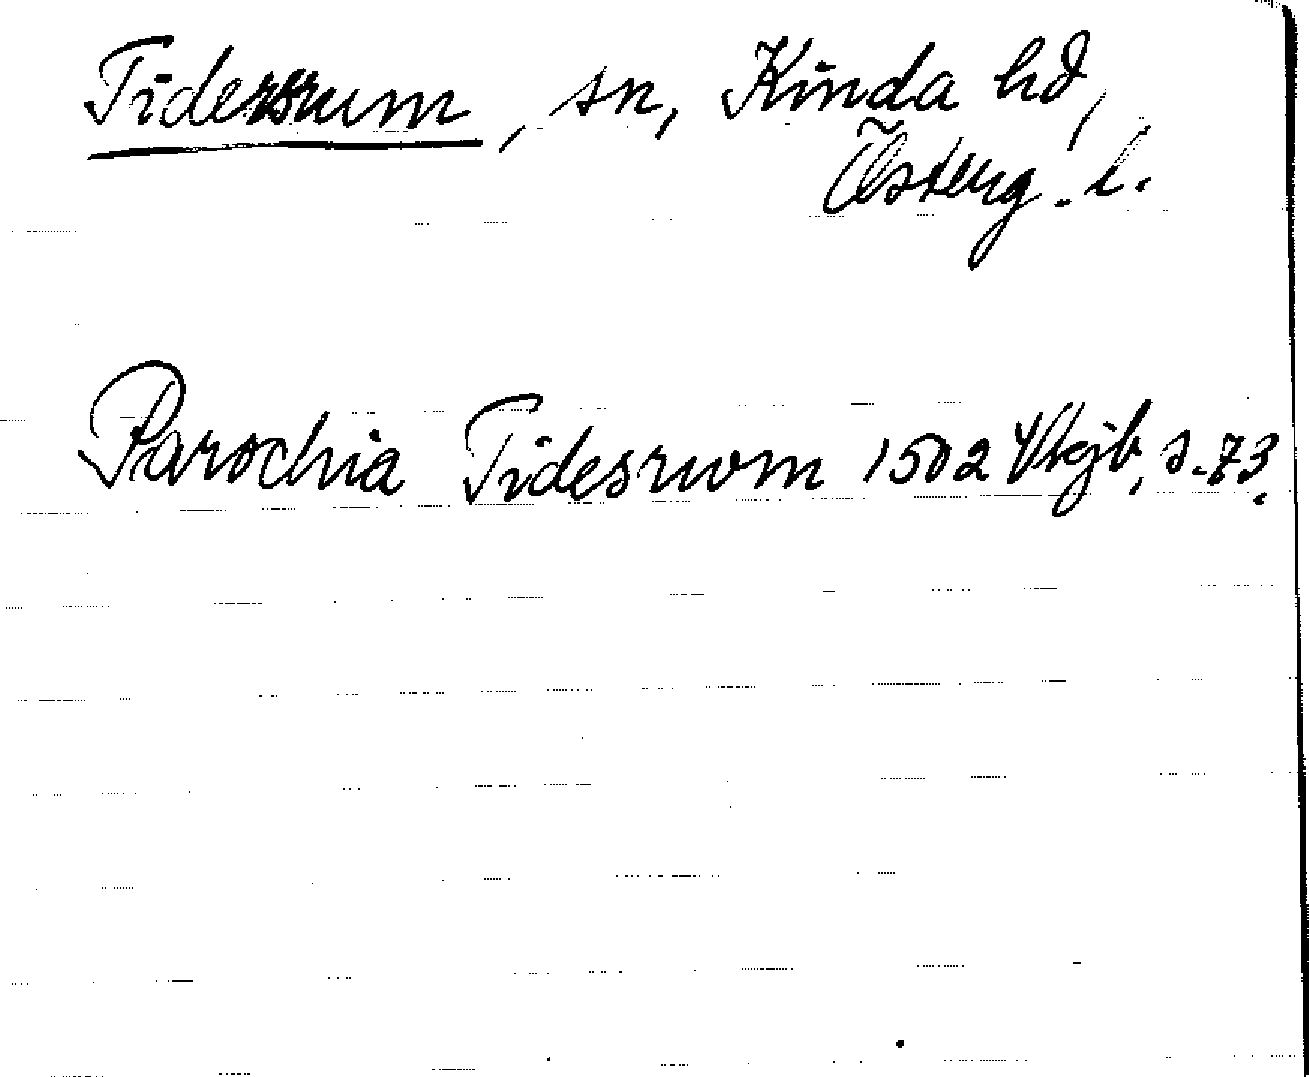 Tidersrum, sn, Kinda hd,
Österg. l.
Parochia Tidesrwm 1502 Vkjb, s. 73.